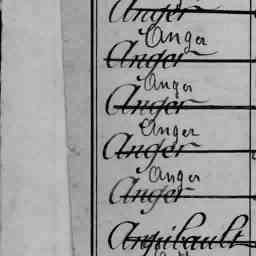 Anger
Anga
Anger
Anga
Anger
Anger
Anger
Anga
Anger
Arquibault